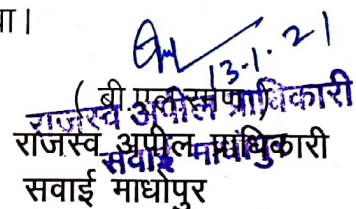 या।
13.1.21
राजस्व अपील प्राधिकारी
सवाई माधोपुर
राजस्व अपील प्राधिकारी
सवाई माधोपुर